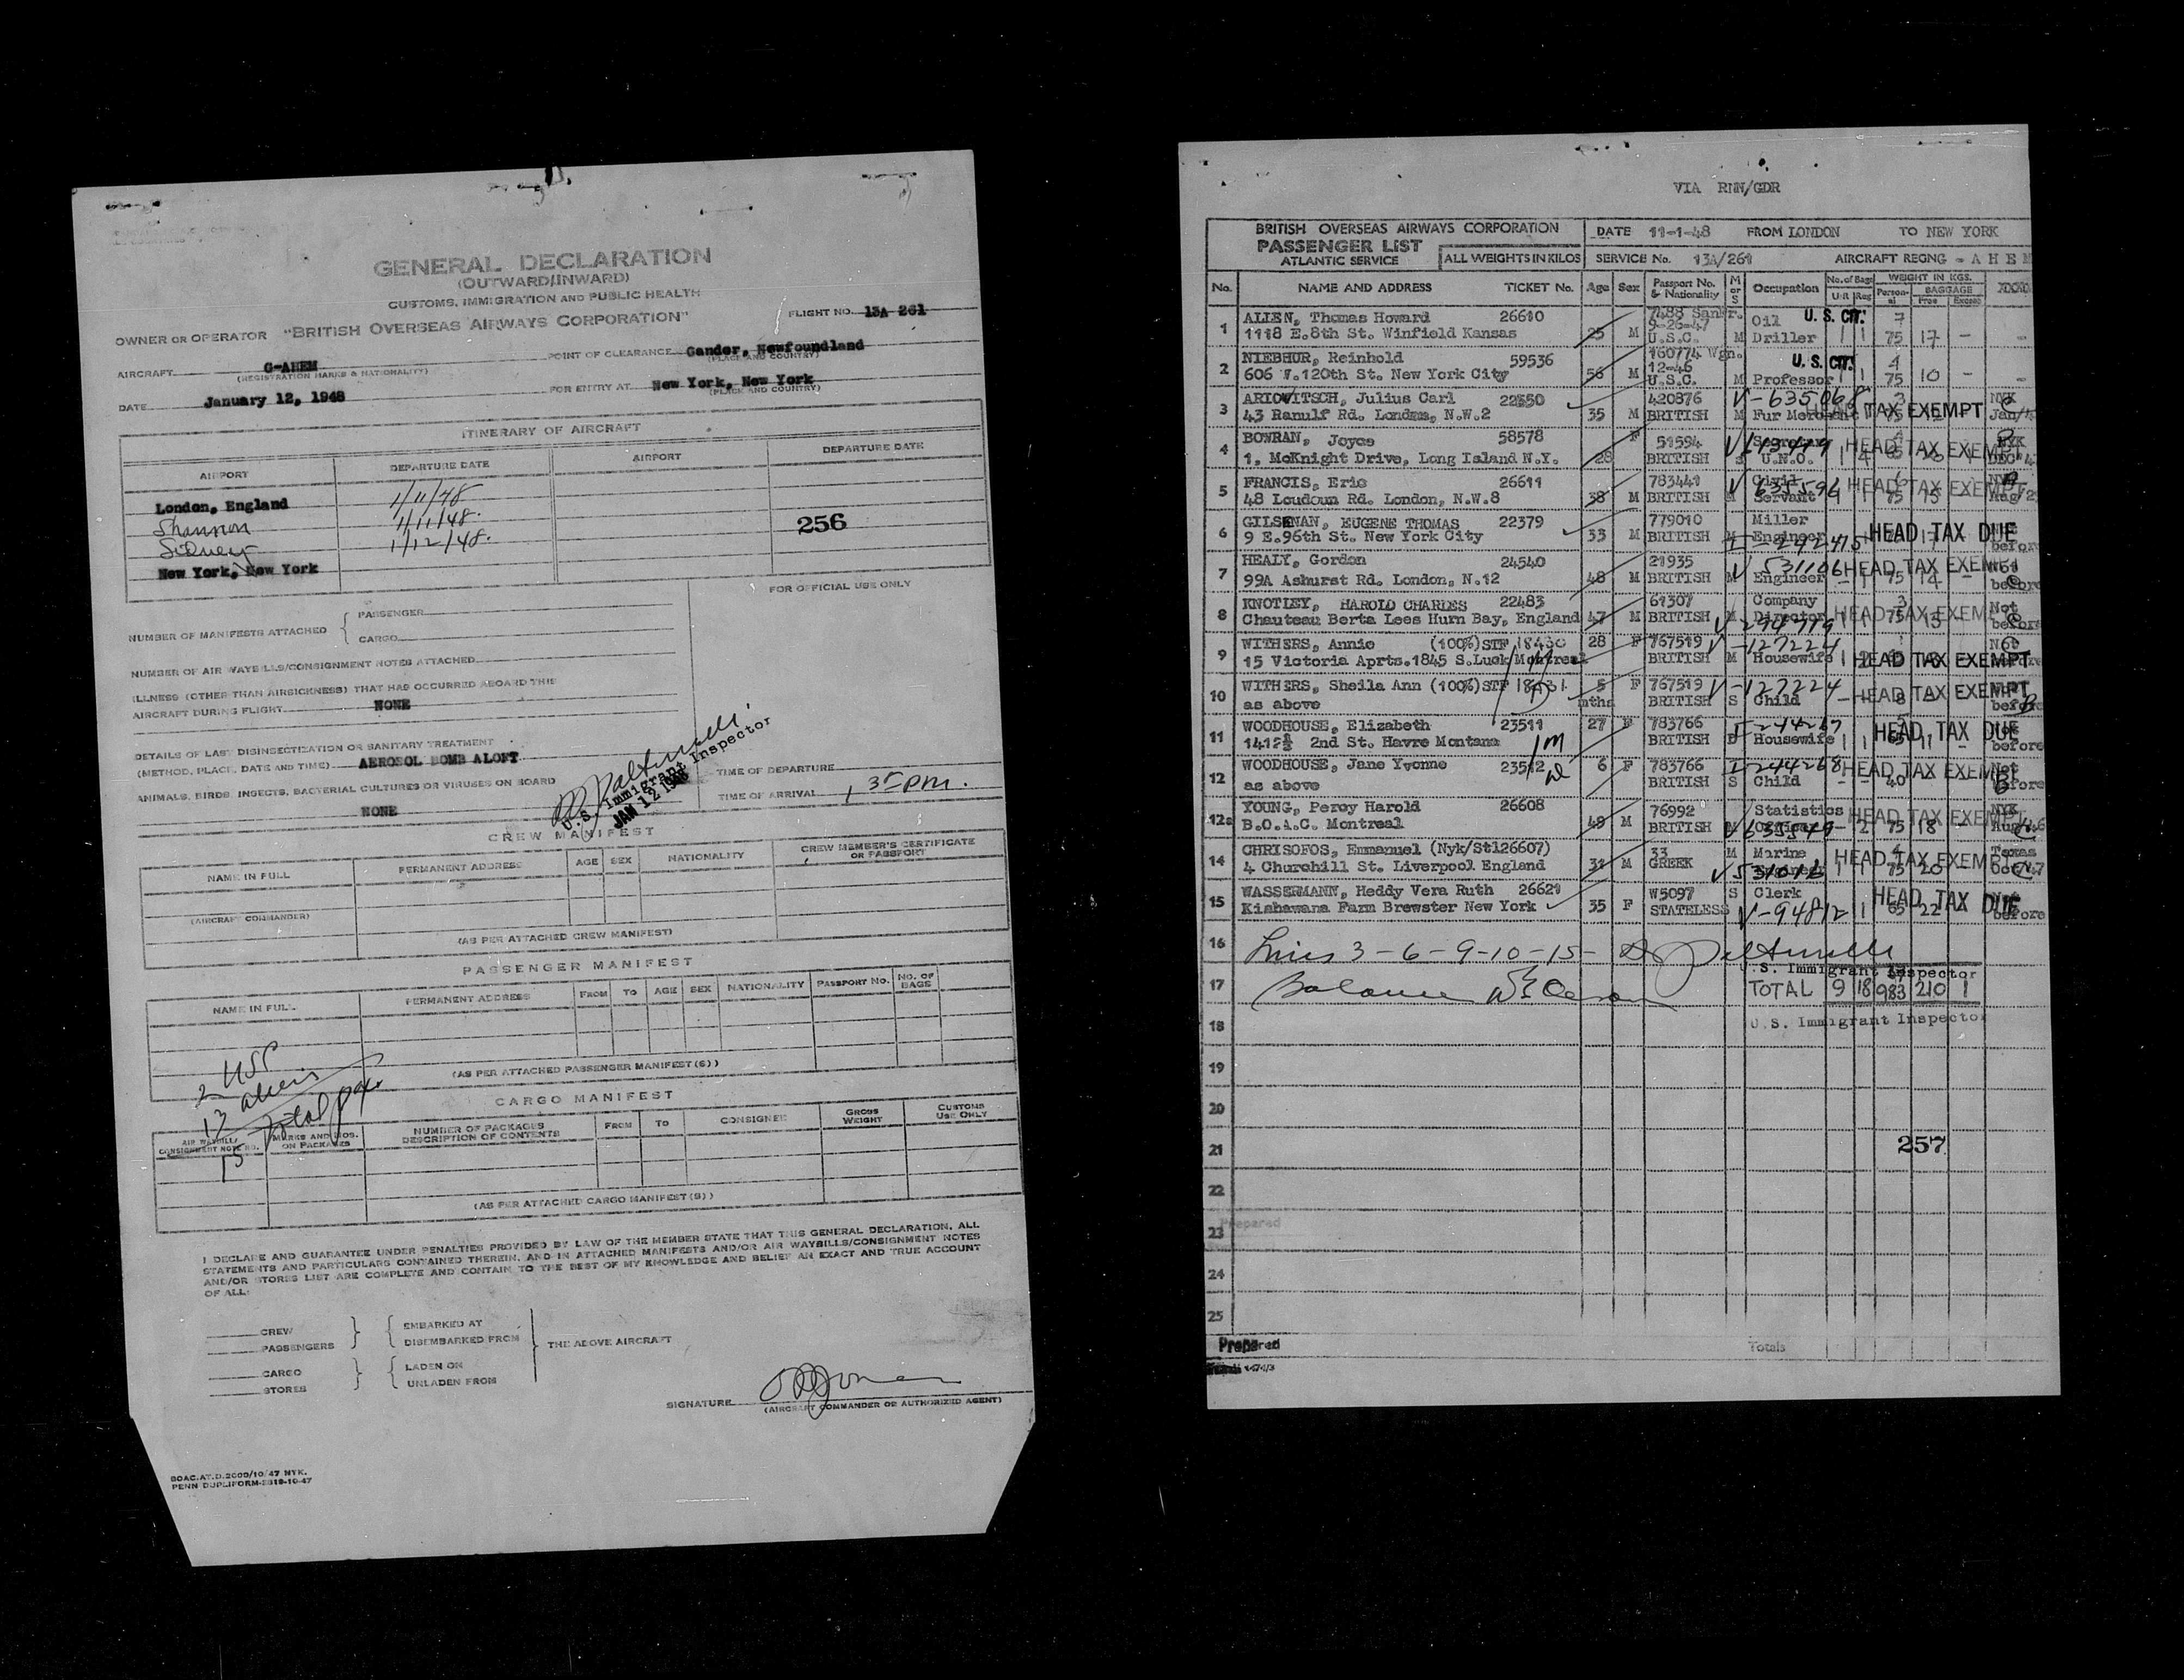 GENERAL DECLARATION
(OUTWARD/INWARD)
CUSTOMS, IMMIGRATION AND PUBLIC HEALTH
OWNER OR OPERATOR "BRITISH OVERSEAS AIRWAYS CORPORATION" FLIGHT NO. 13A 261
AIRCRAFT G-AHEM POINT OF CLEARANCE Gander, Newfoundland
(REGISTRATION MARKS & NATIONALITY) (PLACE AND COUNTRY)
DATE January 12, 1948 FOR ENTRY AT New York, New York
(PLACE AND COUNTRY)
ITINERARY OF AIRCRAFT
AIRPORT DEPARTURE DATE AIRPORT DEPARTURE DATE
London, England 1/11/48
Shannon 1/11/48. 256
Sidney 1/12/48.
New York, New York
FOR OFFICIAL USE ONLY
NUMBER OF MANIFESTS ATTACHED { PASSENGER
CARGO
NUMBER OF AIR WAYBILLS/CONSIGNMENT NOTES ATTACHED
ILLNESS (OTHER THAN AIRSICKNESS) THAT HAS OCCURRED ABOARD THIS
AIRCRAFT DURING FLIGHT NONE
DETAILS OF LAST DISINSECTIZATION OR SANITARY TREATMENT
(METHOD, PLACE, DATE AND TIME) AEROSOL BOMB ALOFT
U.S. Immigrant Inspector
JAN 12 1948
TIME OF DEPARTURE
ANIMALS, BIRDS, INSECTS, BACTERIAL CULTURES OR VIRUSES ON BOARD
TIME OF ARRIVAL 1 35 PM.
NONE
CREW MANIFEST
NAME IN FULL PERMANENT ADDRESS AGE SEX NATIONALITY CREW MEMBER'S CERTIFICATE OR PASSPORT
(AIRCRAFT COMMANDER)
(AS PER ATTACHED CREW MANIFEST)
PASSENGER MANIFEST
NAME IN FULL PERMANENT ADDRESS FROM TO AGE SEX NATIONALITY PASSPORT No. NO. OF BAGS
(AS PER ATTACHED PASSENGER MANIFEST(S))
2 USC
13 aliens
15 Total pax
CARGO MANIFEST
AIR WAYBILL/CONSIGNMENT NOTE NO. MARKS AND NOS. ON PACKAGES NUMBER OF PACKAGES DESCRIPTION OF CONTENTS FROM TO CONSIGNEE GROSS WEIGHT CUSTOMS USE ONLY
(AS PER ATTACHED CARGO MANIFEST(S))
I DECLARE AND GUARANTEE UNDER PENALTIES PROVIDED BY LAW OF THE MEMBER STATE THAT THIS GENERAL DECLARATION, ALL
STATEMENTS AND PARTICULARS CONTAINED THEREIN, AND IN ATTACHED MANIFESTS AND/OR AIR WAYBILLS/CONSIGNMENT NOTES
AND/OR STORES LIST ARE COMPLETE AND CONTAIN TO THE BEST OF MY KNOWLEDGE AND BELIEF AN EXACT AND TRUE ACCOUNT
OF ALL:
CREW EMBARKED AT
PASSENGERS DISEMBARKED FROM THE ABOVE AIRCRAFT
CARGO LADEN ON
STORES UNLADEN FROM
SIGNATURE
(AIRCRAFT COMMANDER OR AUTHORIZED AGENT)
BOAC.AT.D.2000/10/47 NYK.
PENN DUPLIFORM-2819-10-47
VIA RNN/GDR
BRITISH OVERSEAS AIRWAYS CORPORATION DATE 11-1-48 FROM LONDON TO NEW YORK
PASSENGER LIST
ATLANTIC SERVICE ALL WEIGHTS IN KILOS SERVICE No. 13A/261 AIRCRAFT REGNG - AHEM
No. NAME AND ADDRESS TICKET No. Age Sex Passport No. & Nationality M or S Occupation No. of Bags U/R Reg WEIGHT IN KGS. Personal BAGGAGE Free Excess
1 ALLEN, Thomas Howard 26610 7488 Sanfr. Oil U. S. CIT. 7
1118 E.8th St. Winfield Kansas 25 M 9-26-47 U.S.C. M Driller 1 1 75 17 -
2 NIEBHUR, Reinhold 59536 160774 Wgn. U. S. CIT. 4
606 W.120th St. New York City 56 M 12-46 U.S.C. M Professor 1 1 75 10 -
3 ARIOVITSCH, Julius Carl 22550 420876 V-635068
43 Ranulf Rd. London, N.W.2 35 M BRITISH M Fur Merchant HEAD TAX EXEMPT
4 BOWRAN, Joyce 58578 F 51594 Secretary HEAD TAX EXEMPT
1, McKnight Drive, Long Island N.Y. 28 BRITISH S U.N.O. 1 4
5 FRANCIS, Eric 26611 783441 Civil V 635596 HEAD TAX EXEMPT
48 Loudoun Rd. London, N.W.8 38 M BRITISH M Servant 75 15
6 GILSENAN, EUGENE THOMAS 22379 779010 Miller HEAD TAX DUE
9 E.96th St. New York City 33 M BRITISH M Engineer I-242415 before
7 HEALY, Gordon 24540 21935 V 531106 HEAD TAX EXEMPT
99A Ashurst Rd. London, N.12 48 M BRITISH M Engineer - 1 75 14 - before
8 KNOTLEY, HAROLD CHARLES 22483 61307 Company HEAD TAX EXEMPT Not
Chauteau Berta Lees Hurn Bay, England 47 M BRITISH M Director V-294719 1 75 13 - before
9 WITHERS, Annie (100%)STF 18430 28 F 767519 V-127224 Not
15 Victoria Aprts.1845 S.Luck/Montreal BRITISH M Housewife HEAD TAX EXEMPT
10 WITHERS, Sheila Ann (100%)STF 18431 5 F 767519 V-127224 HEAD TAX EXEMPT
as above mths BRITISH S Child - - 8 - before
11 WOODHOUSE, Elizabeth 23511 27 F 783766 I-244267 HEAD TAX DUE
1412½ 2nd St. Havre Montana BRITISH Housewife 1 1 65 11 - before
12 WOODHOUSE, Jane Yvonne 23512 6 F 783766 I-244268 HEAD TAX EXEMPT
as above BRITISH S Child - - 40 - before
12a YOUNG, Percy Harold 26608 76992 Statistics HEAD TAX EXEMPT NYK
B.O.A.C. Montreal 49 M BRITISH M Officer - 2 75 18 -
14 CHRISOFOS, Emmanuel (Nyk/Stl26607) 33 M Marine HEAD TAX EXEMPT Texas
4 Churchill St. Liverpool England 31 M GREEK V 531016 1 1 75 20 Oct/47
15 WASSERMANN, Heddy Vera Ruth 26621 W5097 S Clerk HEAD TAX DUE
Kiahawana Farm Brewster New York 35 F STATELESS V-94812 1 65 22 before
16 Lines 3-6-9-10-15-
U.S. Immigrant Inspector
17 Balance TOTAL 9 18 983 210 1
18 U.S. Immigrant Inspector
19
20
21 257
22
23 Prepared
24
25
Prepared Totals